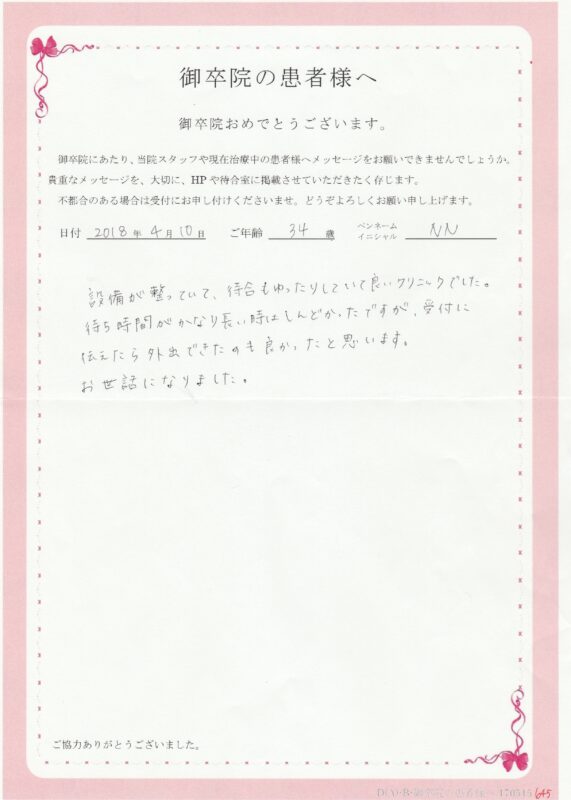 御卒院の患者様へ
御卒院おめでとうございます。
御卒院にあたり、当院スタッフや現在治療中の患者様へメッセージをお願いできませんでしょうか。
貴重なメッセージを、大切に、HPや待合室に掲載させていただきたく存じます。
不都合のある場合は受付にお申し付けくださいませ。どうぞよろしくお願い申し上げます。
日付 2018年4月10日 ご年齢 34歳 ペンネーム イニシャル NN
設備が整っていて、待合もゆったりしていて良いクリニックでした。
待ち時間がかなり長い時はしんどかったですが、受付に
伝えたら外出できたのも良かったと思います。
お世話になりました。
ご協力ありがとうございました。
B・御卒院の患者様へ 170515 645